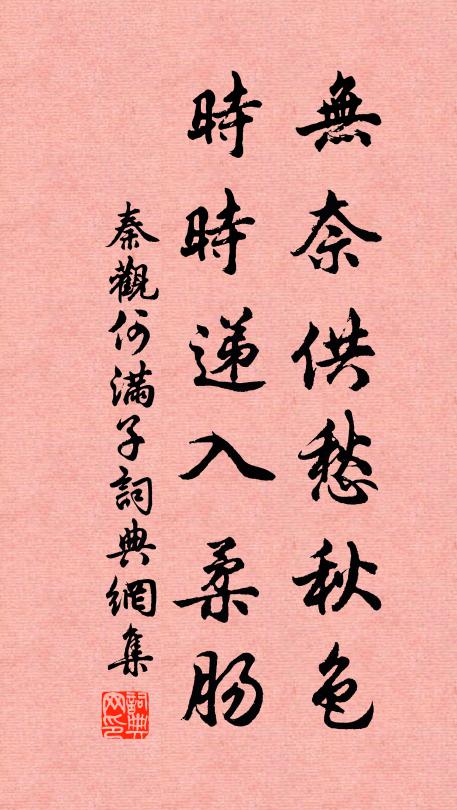 無奈供愁秋色
時時遞入柔腸
秦觀何滿子詞典網集
詞典網印